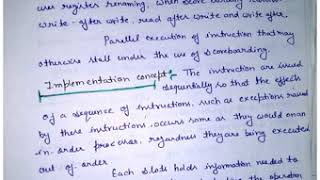 uses register renaming, when score boarding
write-after write, read after write and write after,
Parallel execution of instruction that may
otherwise stall under the use of scoreboarding.
Implementation concept:- The instruction are issued
sequentially so that the effects
of a sequence of instructions, such as exceptions raised
by these instructions occurs same as they would on an
in-order processor, regardness they are being executed
out of order.
Each slots holds information needed to
the operation